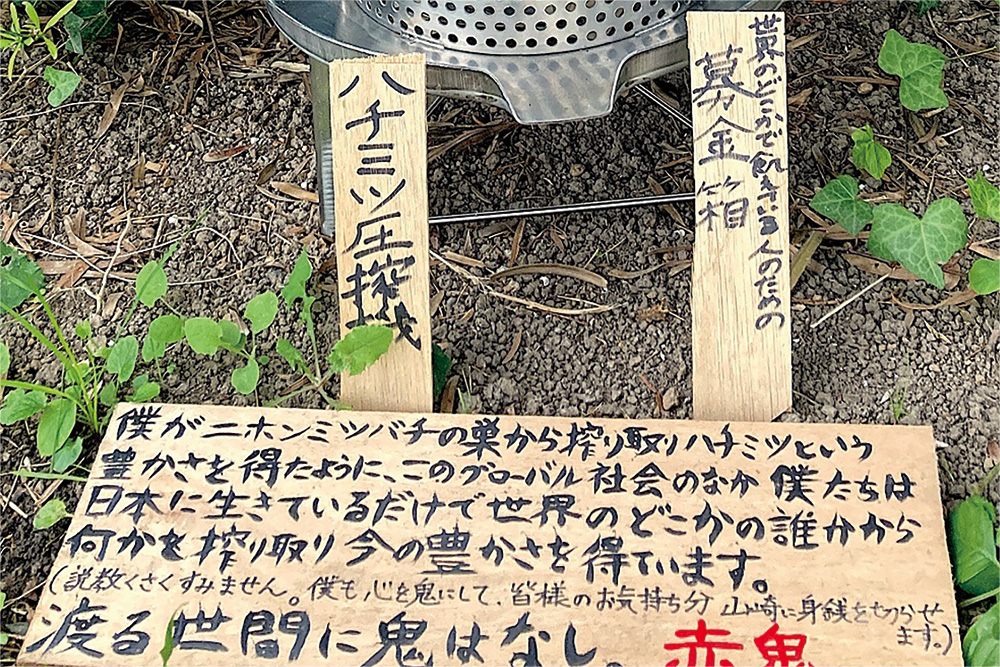 ハチミツ圧搾機
世界のどこかで飢えている人のための
募金箱
僕がニホンミツバチの巣から搾り取りハチミツという
豊かさを得たように、このグローバル社会のなか僕たちは
日本に生きているだけで世界のどこかの誰かから
何かを搾り取り今の豊かさを得ています。
(説教くさくすみません。僕も心を鬼にして、皆様のお気持ち分 山崎に身銭を切らせ
ます。)
渡る世間に鬼はなし。赤鬼